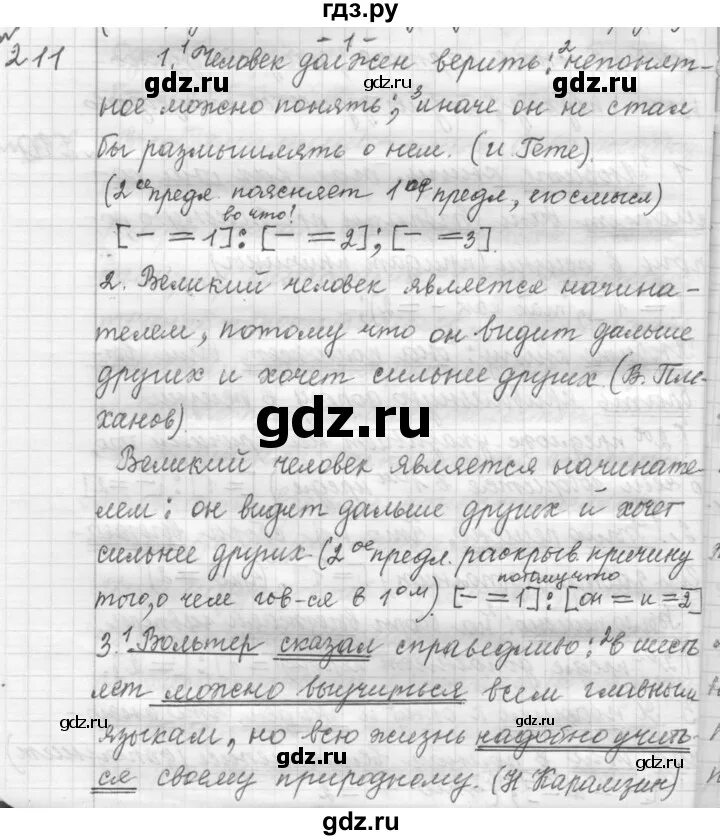 гдз.ру
211 1. ¹Человек должен верить: ²непонят-
ное можно понять; ³иначе он не стал
бы размышлять о нем. (И. Гете).
(2ое предл. поясняет 1ое предл, его смысл)
во что?
[– = 1]: [– = 2]; [– = 3].
2. Великий человек является начина-
телем, потому что он видит дальше
других и хочет сильнее других (В. Пле-
ханов).
Великий человек является начинате-
лем: он видит дальше других и хочет
сильнее других (2ое предл. раскрыв. причину
потому что
того, о чем гов-ся в 1ом) [– = 1]: [он = и = 2]
3. ¹Вольтер сказал справедливо: ²в шесть
лет можно выучиться всем главным
языкам, но всю жизнь надобно учить-
ся своему природному. (Н Карамзин)
gdz.ru
gdz.ru
gdz.ru
gdz.ru
gdz.ru
gdz.ru
gdz.ru
gdz.ru
gdz.ru
gdz.ru
gdz.ru
gdz.ru
gdz.ru